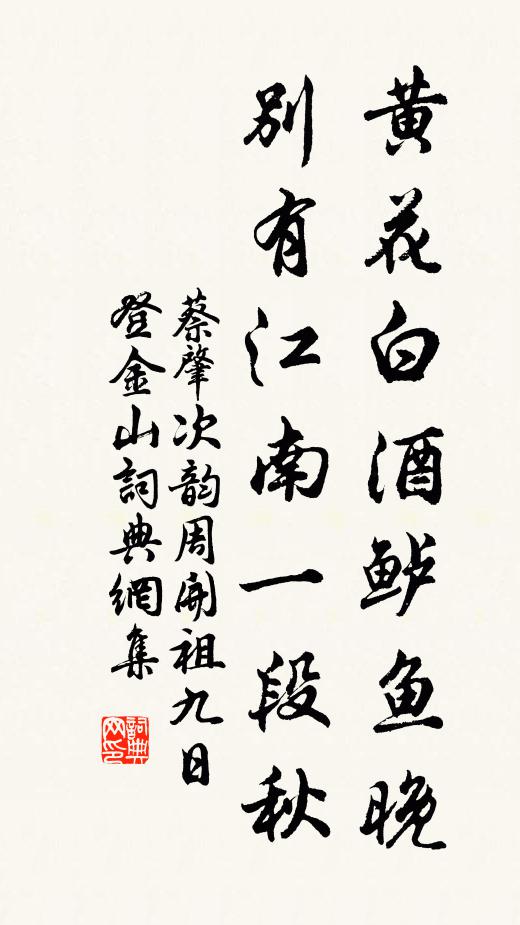 黄花白酒鲈鱼晚
别有江南一段秋
蔡肇次韵周開祖九日
登金山詞典網集
詞典网印